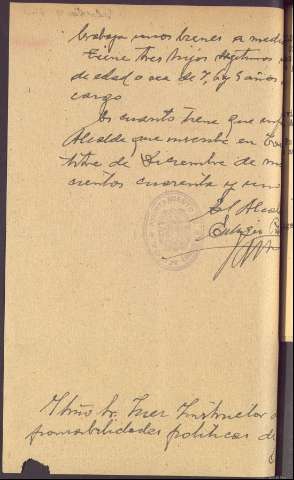 trabaja unos bienes a medi
Tiene tres hijos legitimos
de edad o sea de 7, 6 y 5 años
cargo
Es cuanto tiene que
Alcalde que suscribe en
de Diciembre de
cientos cuarenta y uno
El Alcal
Iltmo Sr. Juez Instructor
ponsabilidades politicas de